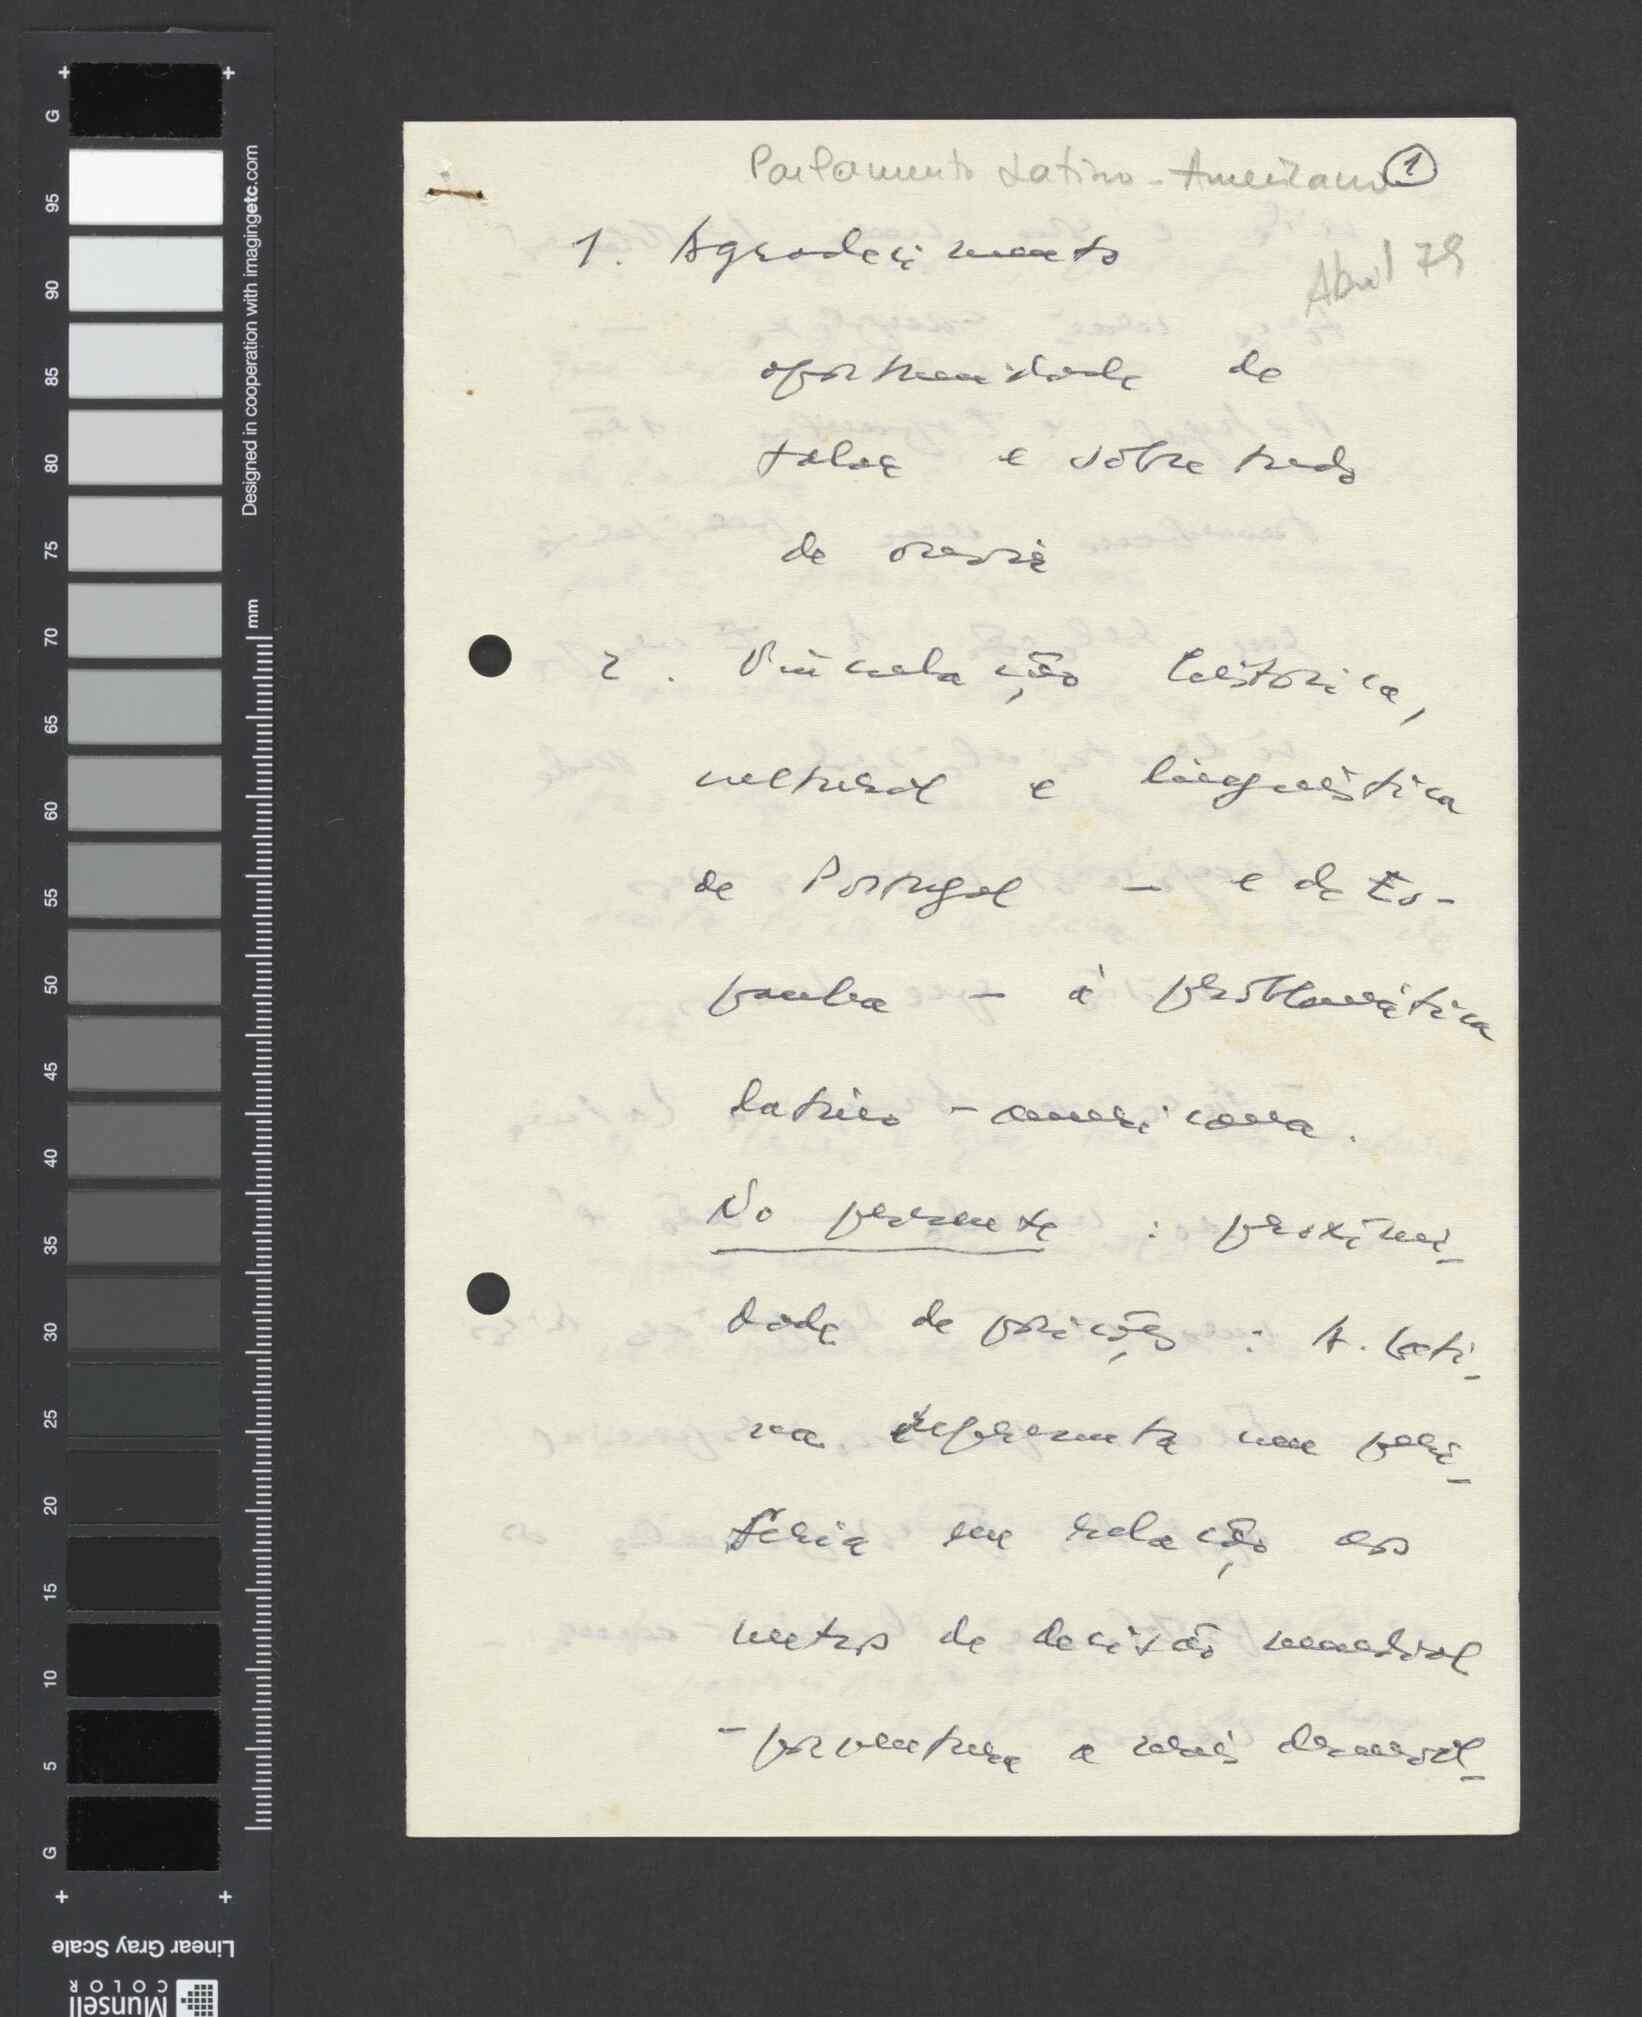 Parlamento Latino-Americano 1
Abril 79
1. Agradecimento
oportunidade de
falar e sobretudo
de ouvir
2. Vinculação histórica,
cultural e linguística
de Portugal - e de Es-
panha - à problemática
latino-americana.
No presente : proximi-
dade de posições : A. Lati-
na representa uma peri-
feria em relação aos
centros de decisão mundial
- porventura a mais desenvol-
G
95
90
85
80
75
70
65
60
55
50
45
40
35
30
25
20
15
10
5
G
mm
Designed in cooperation with imagingetc.com
Linear Gray Scale
Munsell
COLOR